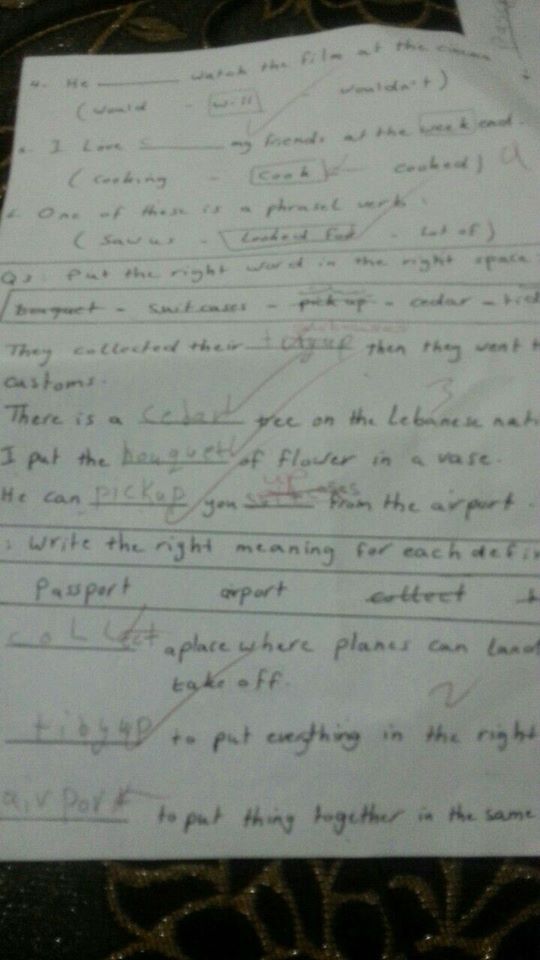 4. He ______ watch the film at the cinema
(would - will - wouldn't)
I Love ______ my friends at the week end.
(cooking - cook - cooked) 4
One of these is a phrasel verb:
(saw us - looked for - Lot of)
Q3: Put the right word in the right space:
bouquet - suitcases - pick up - cedar -
They collected their tidyup then they went
customs.
There is a cedar tree on the Lebanese 3
I put the bouquet of flower in a vase.
He can pickup you up from the airport.
: Write the right meaning for each
Passport airport collect
collect aplace where planes can land
take off. 2
tidyup to put everything in the right
airport to put thing together in the same